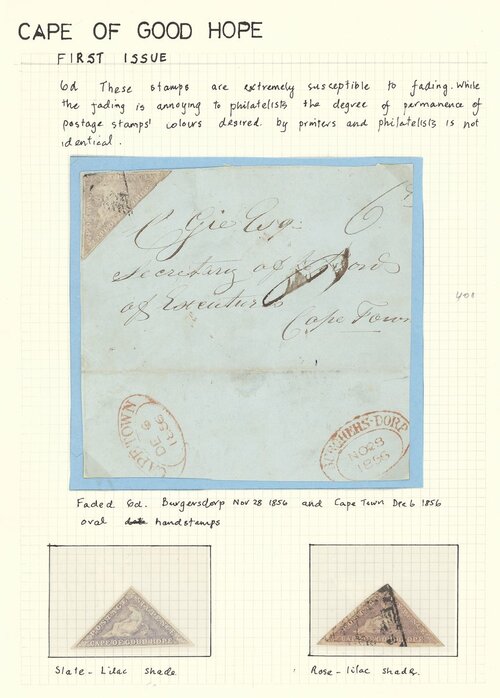 CAPE OF GOOD HOPE
FIRST ISSUE
6d These stamps are extremely susceptible to fading. While
the fading is annoying to philatelists the degree of permanence of
postage stamps' colours desired by printers and philatelists is not
identical.
C Gie Esq: 6
Secretary of
of Executors
Cape Town
CAPE TOWN
DE 6
1856
BURGHERS-DORP
NO 28
1856
401
Faded 6d. Burgersdorp Nov 28 1856 and Cape Town Dec 6 1856
oval handstamps
POSTAGE
CAPE OF GOOD HOPE
CAPE OF GOOD HOPE
Slate-Lilac shade
Rose-lilac shade.